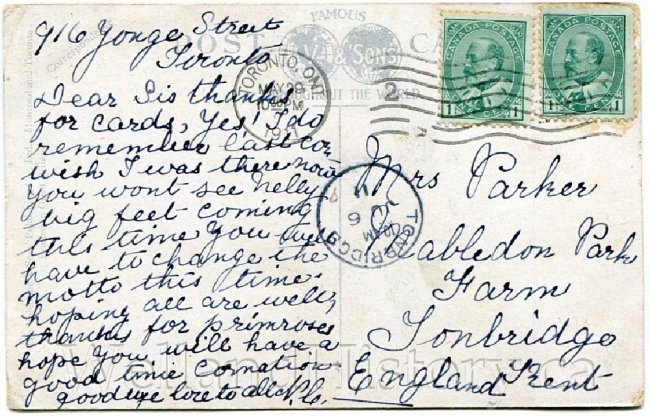 916 Yonge Street
Toronto
Dear Sis thanks
for cards, Yes! I do
remember last cor
wish I was there now
you wont see Nellys
big feet coming
this time you will
have to change the
motto this time.
hoping all are well,
thanks for primroses
hope you will have a
good time cornation
goodbye love to all
FAMOUS
POST CARD
& SONS
THROUGHOUT THE WORLD
TORONTO, ONT.
MAY 29
PM
2
CANADA POSTAGE
1 1
CANADA POSTAGE
1 1
TONBRIDGE
10 AM
JU 6
Mrs Parker
Cabledon Park
Farm
Tonbridge
Kent
England
WellandHistory.ca